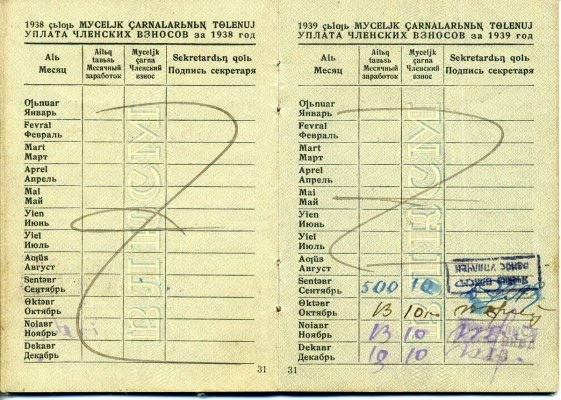 1938 çьloņь MYCELJK ÇARNALARЬNЬŅ TØLENUJ
УПЛАТА ЧЛЕНСКИХ ВЗНОСОВ за 1938 год
Alь Месяц
Ajlьq tabьsь Месячный заработок
Myceljk çarna Членский взнос
Sekretardьņ qolь Подпись секретаря
Январь
Fevral
Февраль
Mart
Март
Aprel
Апрель
Mai
Май
Yien
Июнь
Yiel
Июль
Август
Sentəbr
Сентябрь
Øktəbr
Октябрь
Noiabr
Ноябрь
Dekabr
Декабрь
31
1939 çьloņь MYCELJK ÇARNALARЬNЬŅ TØLENUJ
УПЛАТА ЧЛЕНСКИХ ВЗНОСОВ за 1939 год
Alь Месяц
Ajlьq tabьsь Месячный заработок
Myceljk çarna Членский взнос
Sekretardьņ qolь Подпись секретаря
Январь
Fevral
Февраль
Mart
Март
Aprel
Апрель
Mai
Май
Yien
Июнь
Yiel
Июль
Август
ВЗНОС УПЛАЧЕН
Sentəbr
Сентябрь 500 10
Øktəbr
Октябрь 10
Noiabr
Ноябрь 10
Dekabr
Декабрь 10
31